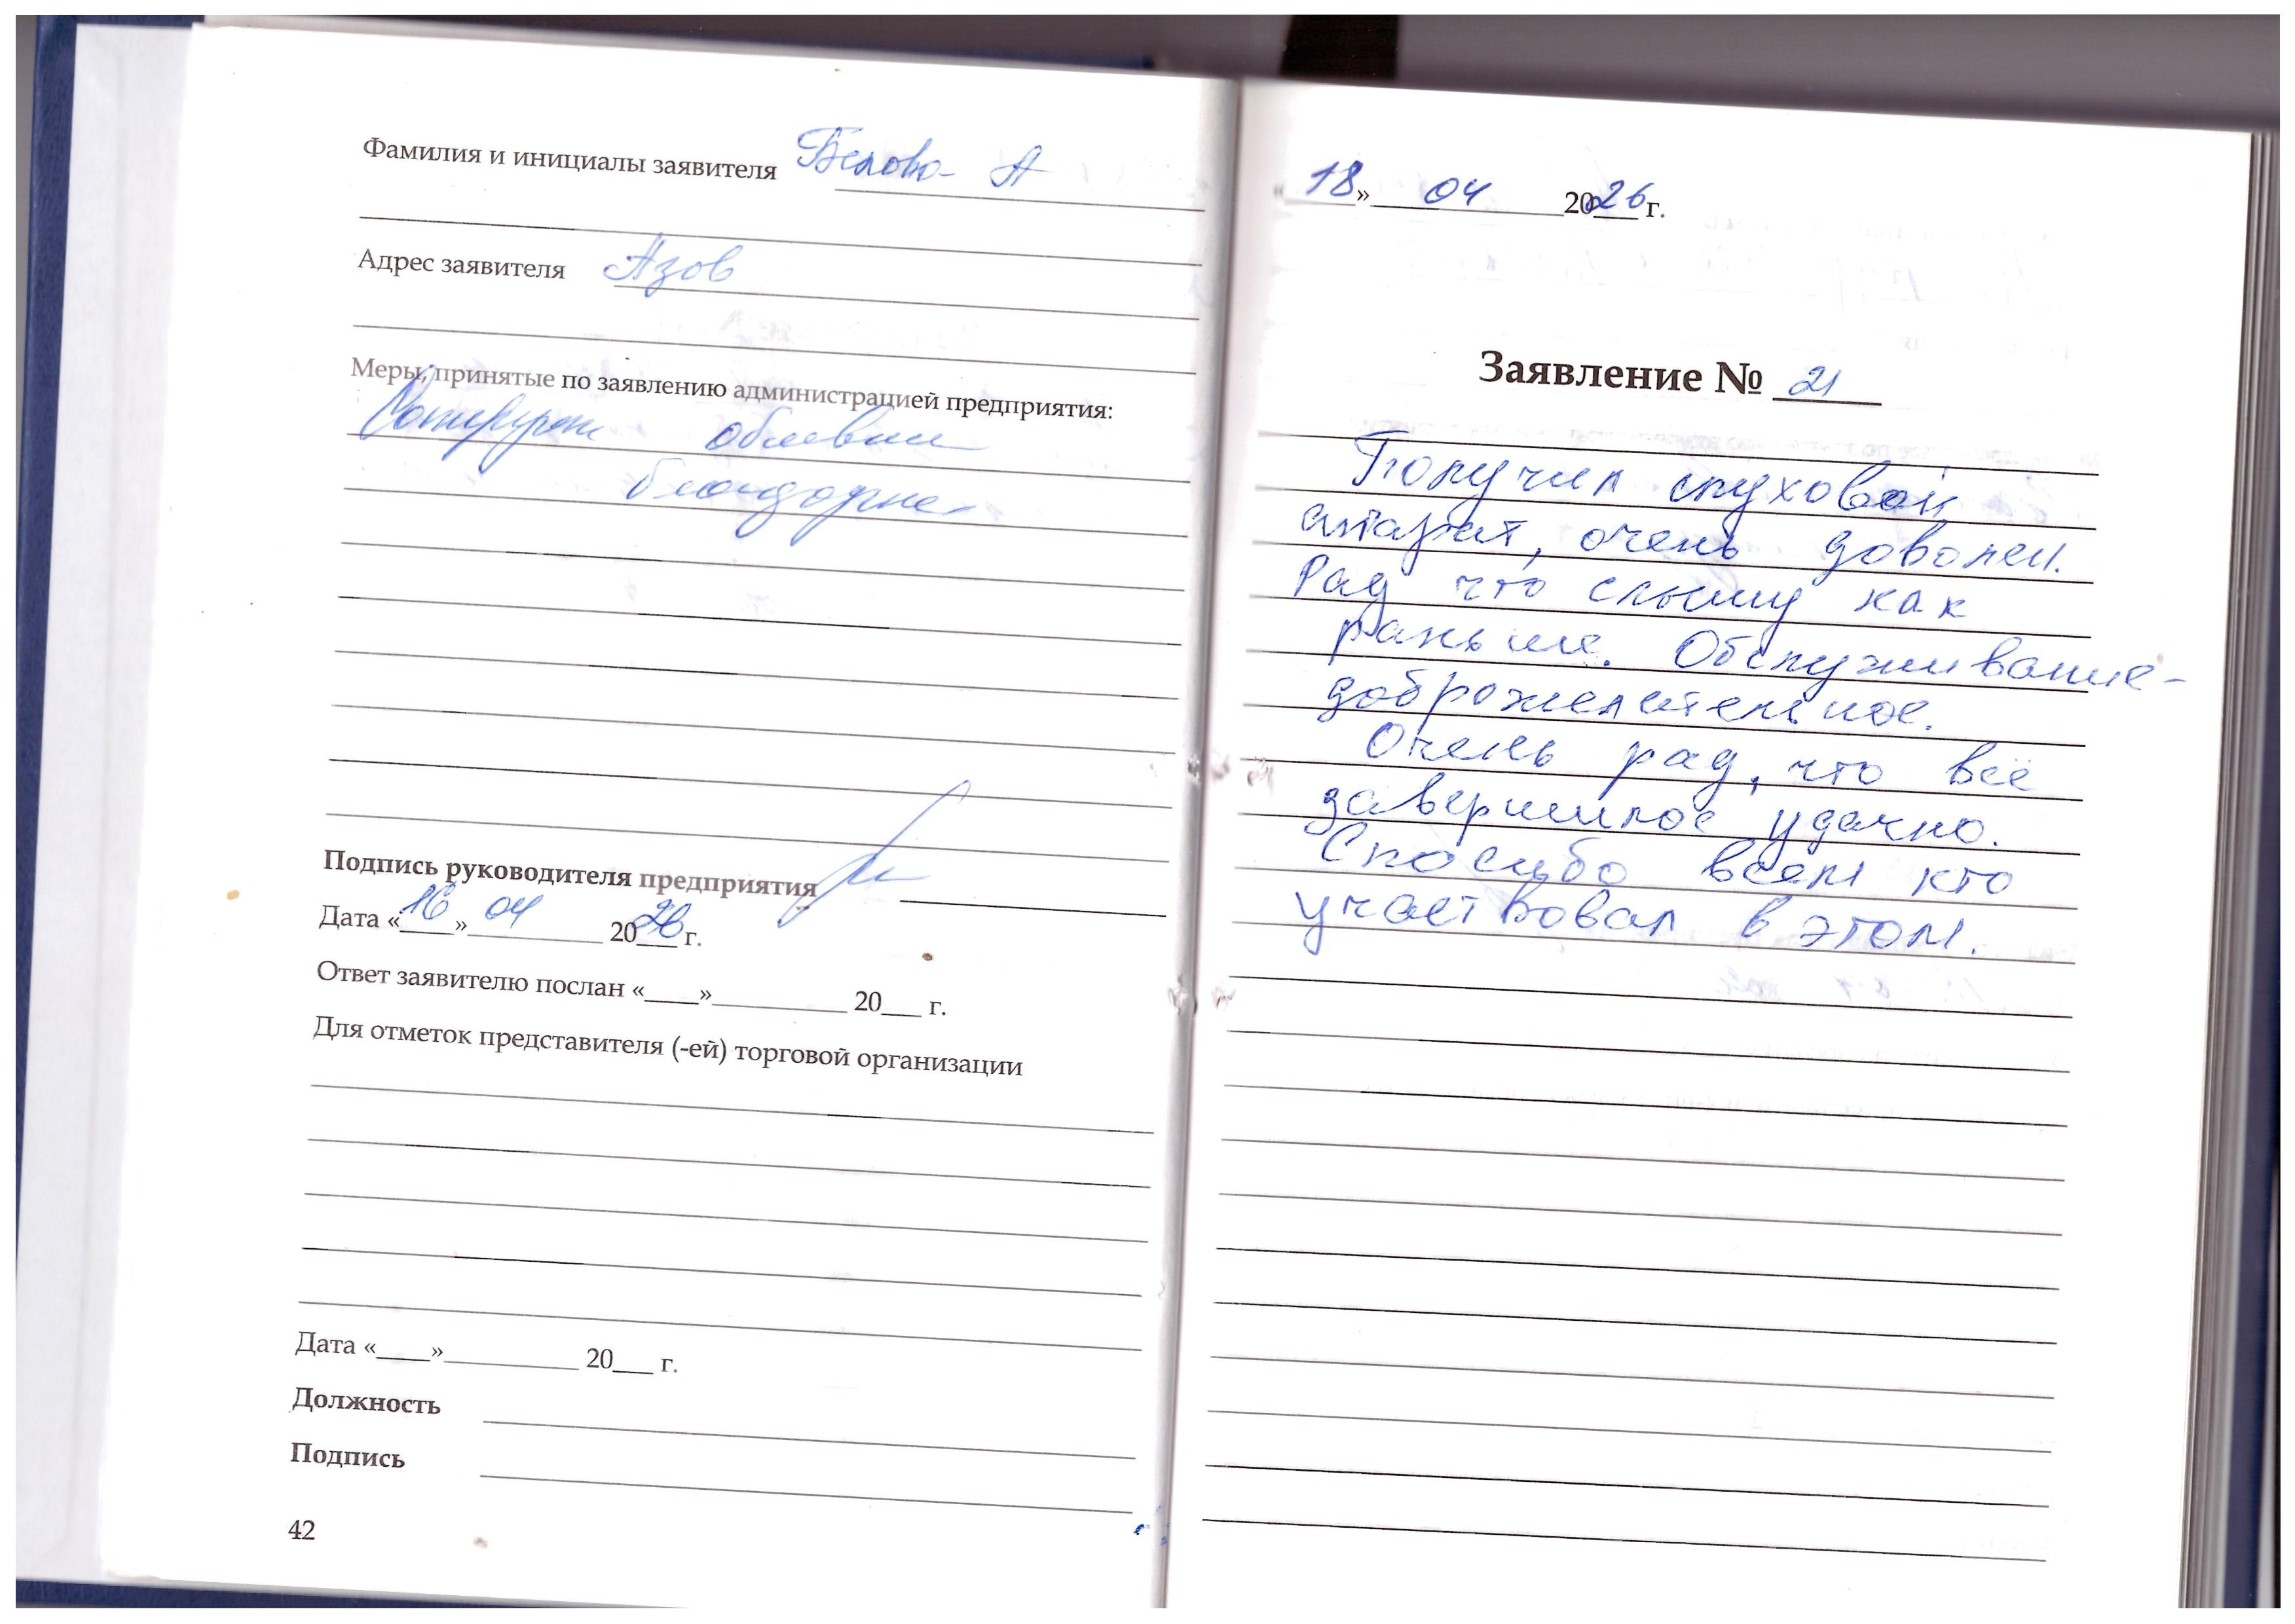 Фамилия и инициалы заявителя Белова А
Адрес заявителя Азов
Меры, принятые по заявлению администрацией предприятия:
объявлена
благодарн
Подпись руководителя предприятия
Дата «16» 04 2026 г.
Ответ заявителю послан «____»__________ 20___ г.
Для отметок представителя (-ей) торговой организации
Дата «____»__________ 20___ г.
Должность
Подпись
42
«18» 04 2026 г.
Заявление № 21
Получил слуховой
аппарат, очень доволен.
Рад что слышу как
раньше. Обслуживание-
доброжелательное.
Очень рад, что всё
завершилось удачно.
Спасибо всем кто
участвовал в этом.